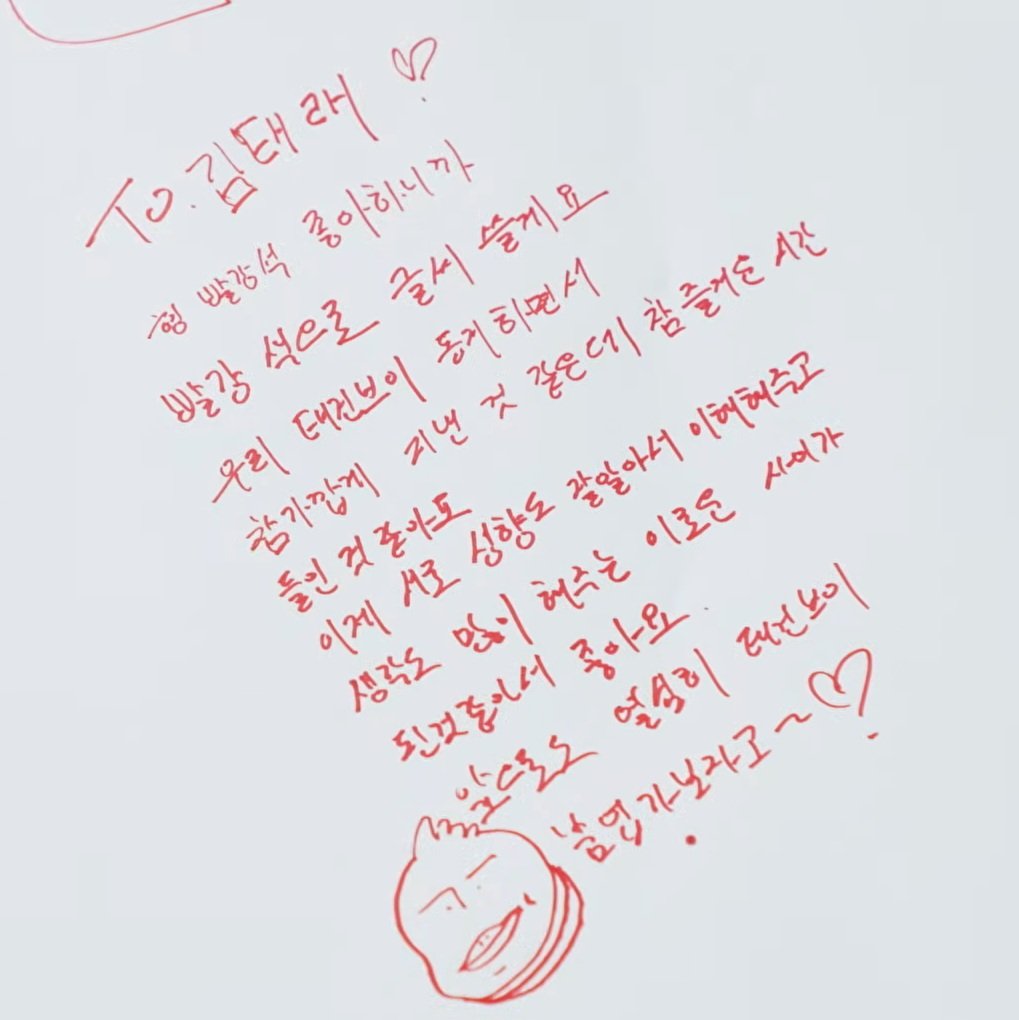 To. 김태래 ♡
형 빨강색 좋아하니까
빨강 색으로 글씨 쓸게요
우리 태건브이 동게하면서
참가깝게 지낸 것 같은데 참 즐거운 시간
들인 것 좋아요
이제 서로 성향도 잘알아서 이해해주고
생각도 많이 해주는 이로운 사이가
된것같아서 좋아요.
앞으로도 열심히 태건브이
넘업가보자고~♡